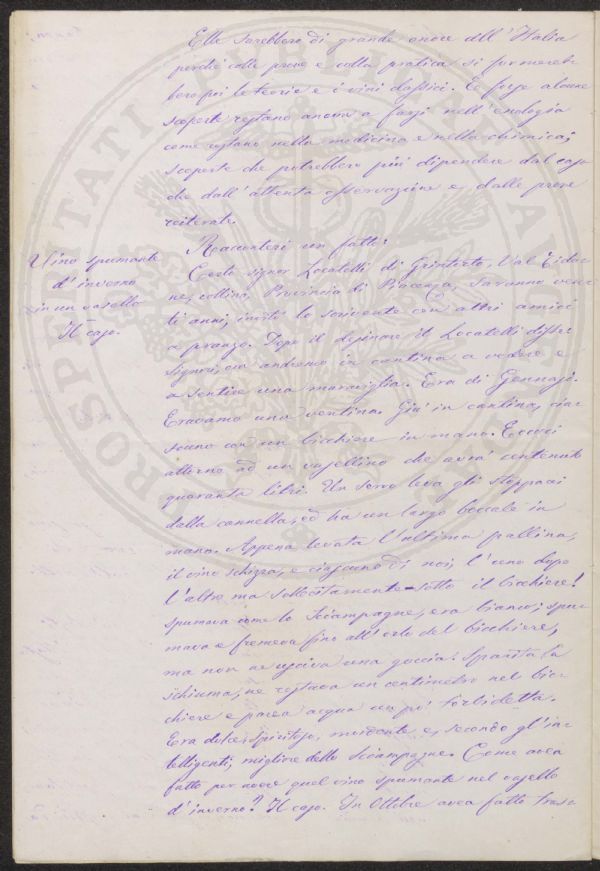 Elle sarebbero di grande onore all'Italia
perché colle prove e colla pratica si formereb-
bero poi le teorie e i vini classici. E forse alcune
scoperte restano ancora a farsi nell'enologia
come restano nella medicina e nella chimica;
scoperte che potrebbero più dipendere dal caso
che dall'attenta osservazione e, dalle prove
reiterate.
Racconterò un fatto:
Vino spumante
d'inverno
in un vasello
Il caso.
Certo signor Locatelli di
ne, collina, Provincia di Piacenza, saranno ven-
ti anni, invitò lo scrivente con altri amici
a pranzo. Dopo il desinare il Locatelli disse:
Signori, ora andremo in cantina a vedere e
a sentire una maraviglia. Era di Gennajo.
Eravamo una ventina. Giù in cantina, cia-
scuno con un bicchiere in mano. Eccoci
attorno ad un vasellino che avrà contenuto
quaranta litri. Un servo leva gli stoppacci
dalla cannella, ed ha un largo boccale in
mano. Appena levata l'ultima pallina,
il vino schizza, e ciascuno di noi, l'uno dopo
l'altro ma sollecitamente - sotto il bicchiere!
spumava come lo Sciampagne, era bianco; spu-
mava e fremeva fino all'orlo del bicchiere,
ma non ne usciva una goccia. Sparita la
schiuma, ne restava un centimetro nel bic-
chiere e parea acqua un po' torbidetta.
Era dolce, spiritoso, mordente e, secondo gl'in-
telligenti, migliore dello Sciampagne. Come avea
fatto per avere quel vino spumante nel vasello
d'inverno? Il caso. In Ottobre avea fatto tras-
PROSPERITATI PUBLICAE AU